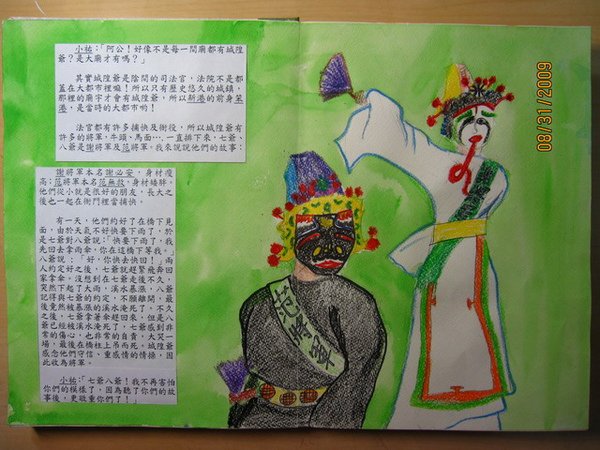 小祐：「阿公！好像不是每一間廟都有城隍
爺？是大廟才有嗎？」
其實城隍爺是陰間的司法官，法院不是都
蓋在大都市裡嘛！所以只有歷史悠久的城鎮，
那裡的廟宇才會有城隍爺，所以新港的前身笨
港，是當時的大都市喲！
法官都有許多捕快及衙役，所以城隍爺有
許多的將軍，牛頭、馬面…一直排下來，七爺、
八爺是謝將軍及范將軍。我來說說他們的故事：
謝將軍本名謝必安，身材瘦
高；范將軍本名范無救，身材矮胖。
他們從小就是很好的朋友，長大之
後也一起在衙門裡當捕快。
有一天，他們約好了在橋下見
面，由於天氣不好快要下雨了，於
是七爺對八爺說：「快要下雨了，我
先回去拿雨傘，你在這橋下等我。」
八爺說：「好，你快去快回！」兩
人約定好之後，七爺就趕緊飛奔回
家拿傘。沒想到在七爺走後不久，
突然下起了大雨，溪水暴漲，八爺
記得與七爺的約定，不願離開，最
後竟然被暴漲的溪水淹死了，不久
之後，七爺拿著傘趕回來，但是八
爺已經被溪水淹死了，七爺感到非
常的傷心，也非常的自責，大哭一
場，最後在橋柱上吊而死。城隍爺
感念他們守信、重感情的情操，因
此收為將軍。
小祐：「七爺八爺！我不再害怕
你們的模樣了，因為聽了你們的故
事後，更敬重你們了！」
范將軍
08/31/2009